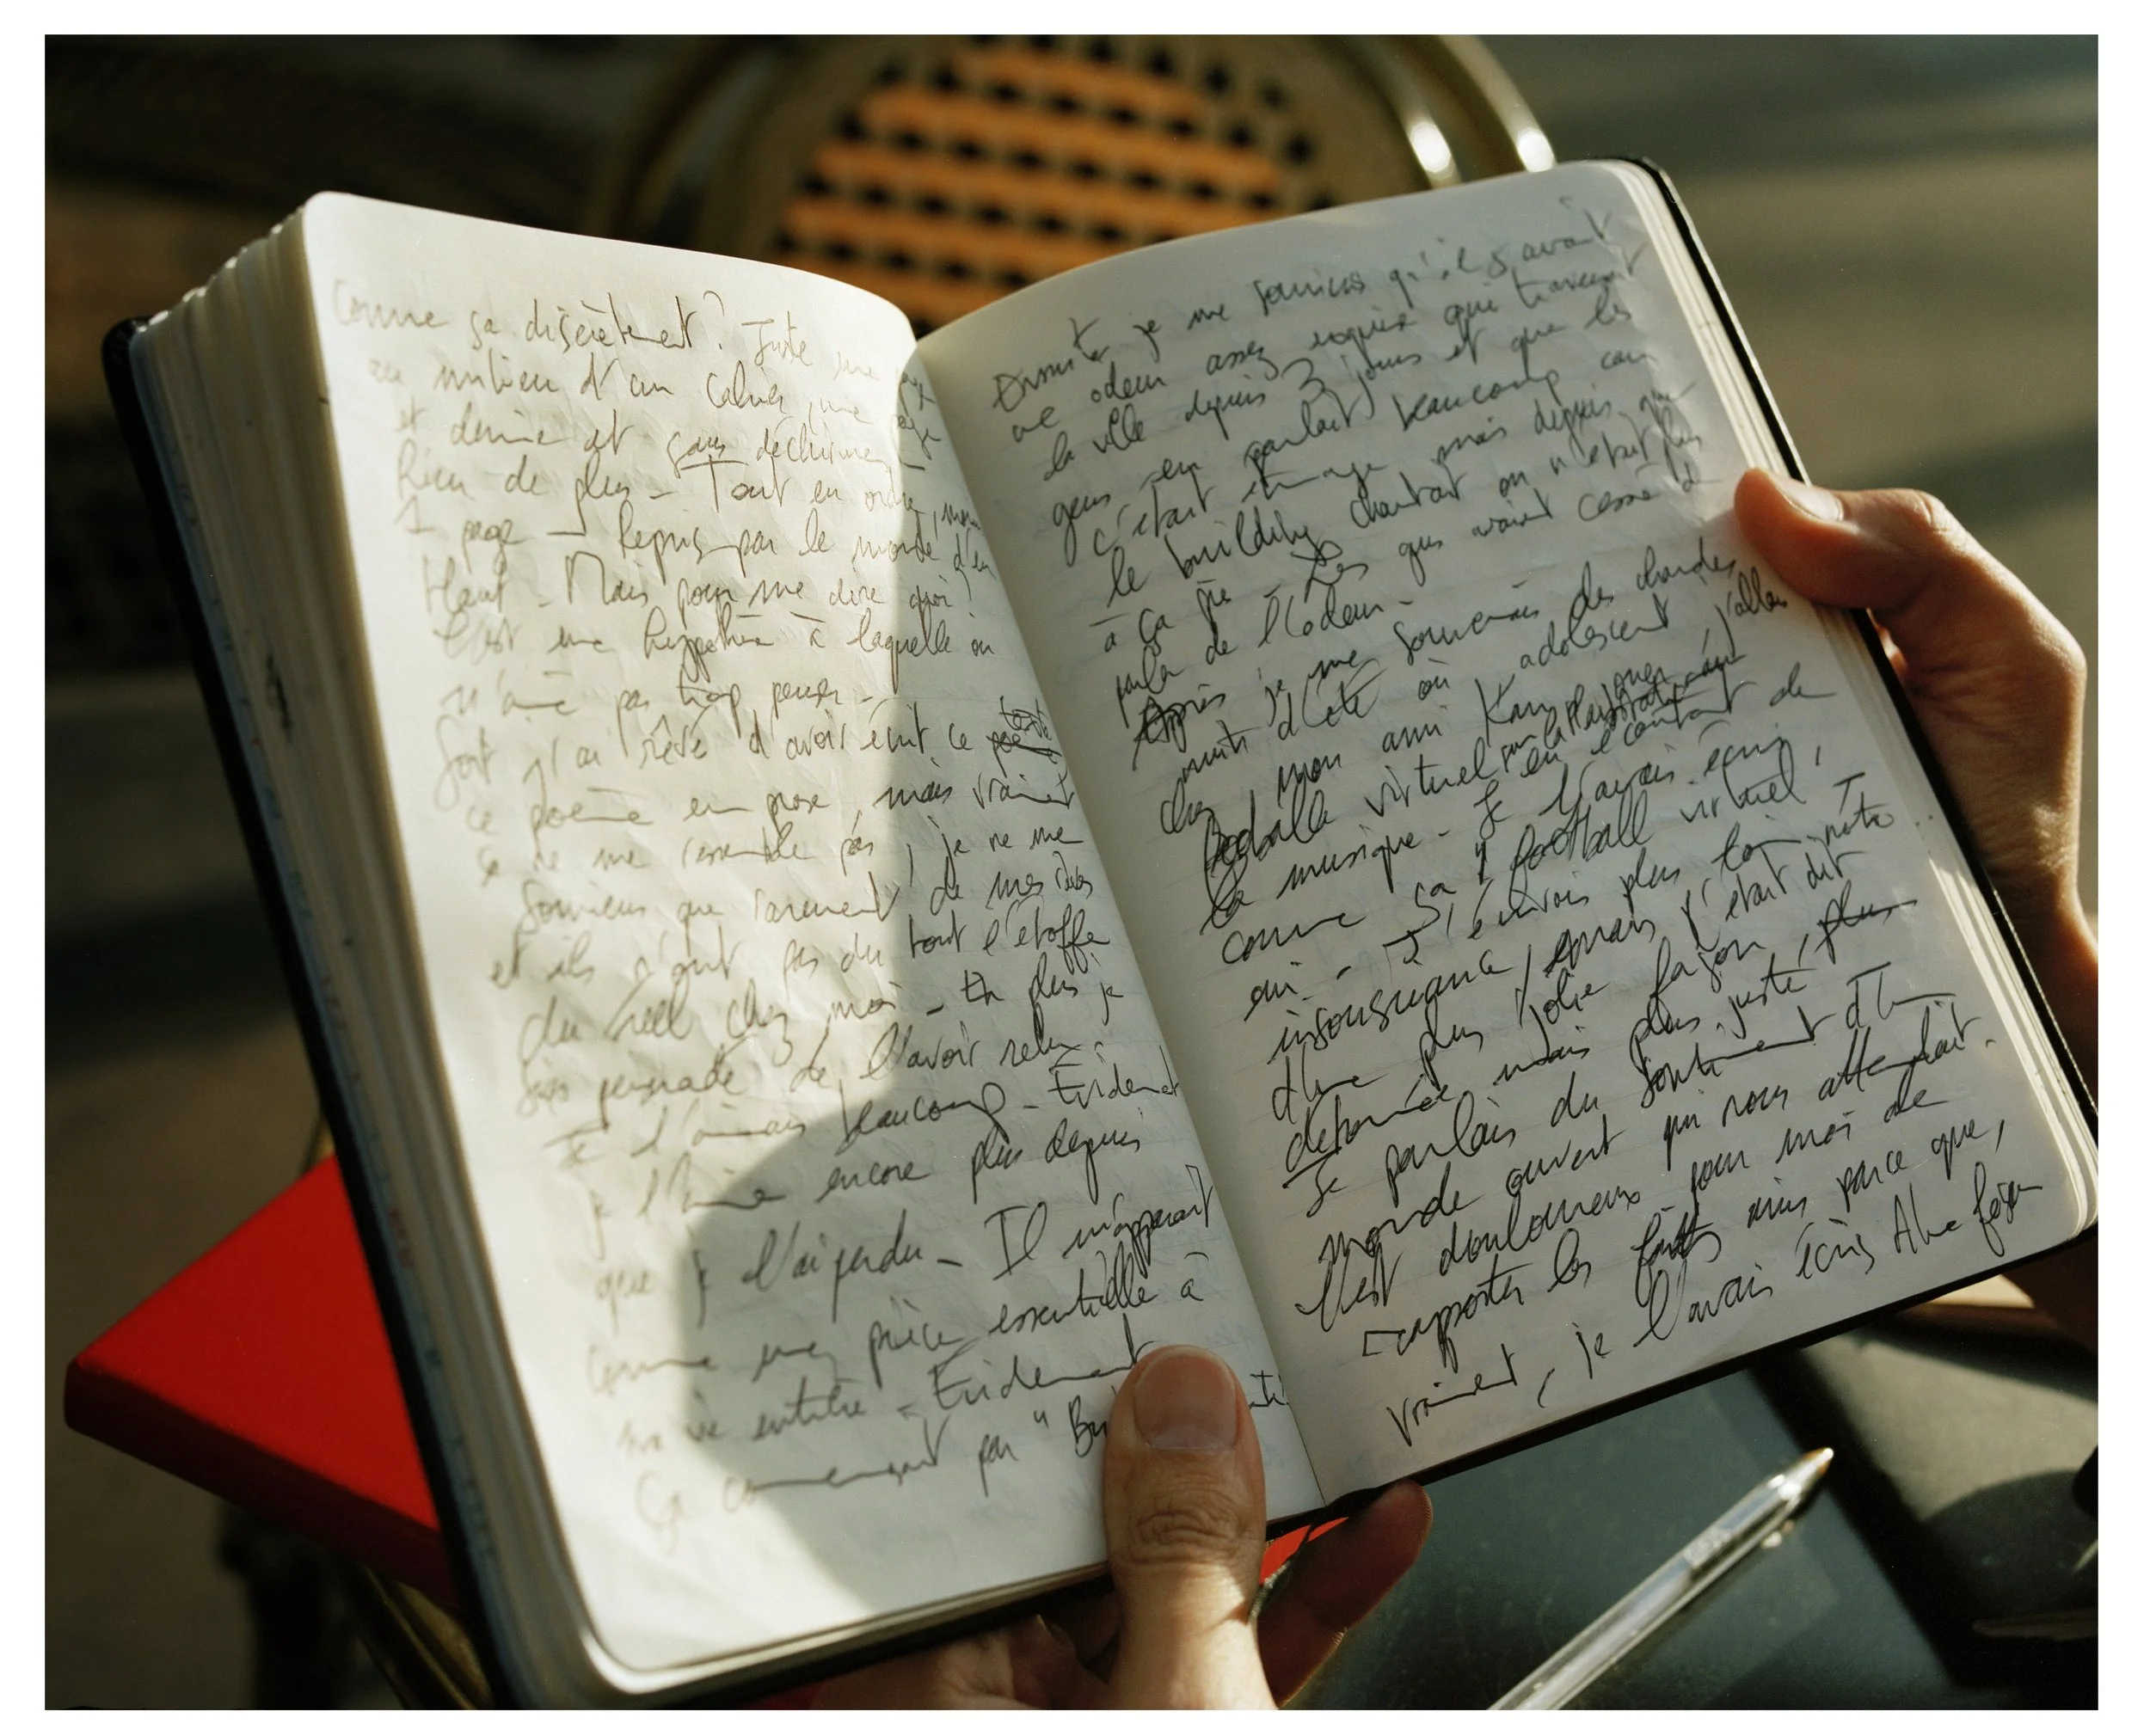 Comme ça discrètement ? Juste une
au milieu d'un cahier, une page
et demie et sans déchirure
Rien de plus - Tout en ordre,
1 page - Repris par le monde d'en
Haut - Mais pour me dire quoi ?
C'est une hypothèse à laquelle on
n'aime pas trop penser -
Soit j'ai rêvé d'avoir écrit ce texte
ce poème en prose, mais vraiment
ça ne me ressemble pas, je ne me
souviens que rarement de mes rêves
et ils n'ont pas du tout l'étoffe
du réel chez moi - En plus je
suis persuadé de l'avoir relu.
Je l'aimais beaucoup - Evidement
je l'aime encore plus depuis
que je l'ai perdu - Il m'apparait
comme une pièce essentielle à
ma vie entière - Evidement
Ça commençait par "Bu
Ensuite je me souviens qu'il y avait
une odeur assez exquise qui traversait
la ville depuis 3 jours et que les
gens en parlait beaucoup car
c'était étrange mais depuis que
le building chantait on n'était plus
à ça près - Les gens avaient cessé de
parler de l'odeur -
Après je me souvenais des chaudes
nuits d'été où adolescent, j'allais
chez mon ami Kam jouer au
football virtuel sur la Playstation en écoutant de
la musique - Je l'avais écrit
comme ça "football virtuel",
oui - J'écrivais plus loin notre
insousciance, mais c'était dit
d'une plus jolie façon, plus
détournée mais plus juste
Je parlais du sentiment d'un
monde ouvert qui nous attendait.
C'est douloureux pour moi de
rapporter les faits ainsi parce que,
vraiment, je l'avais écris d'une façon